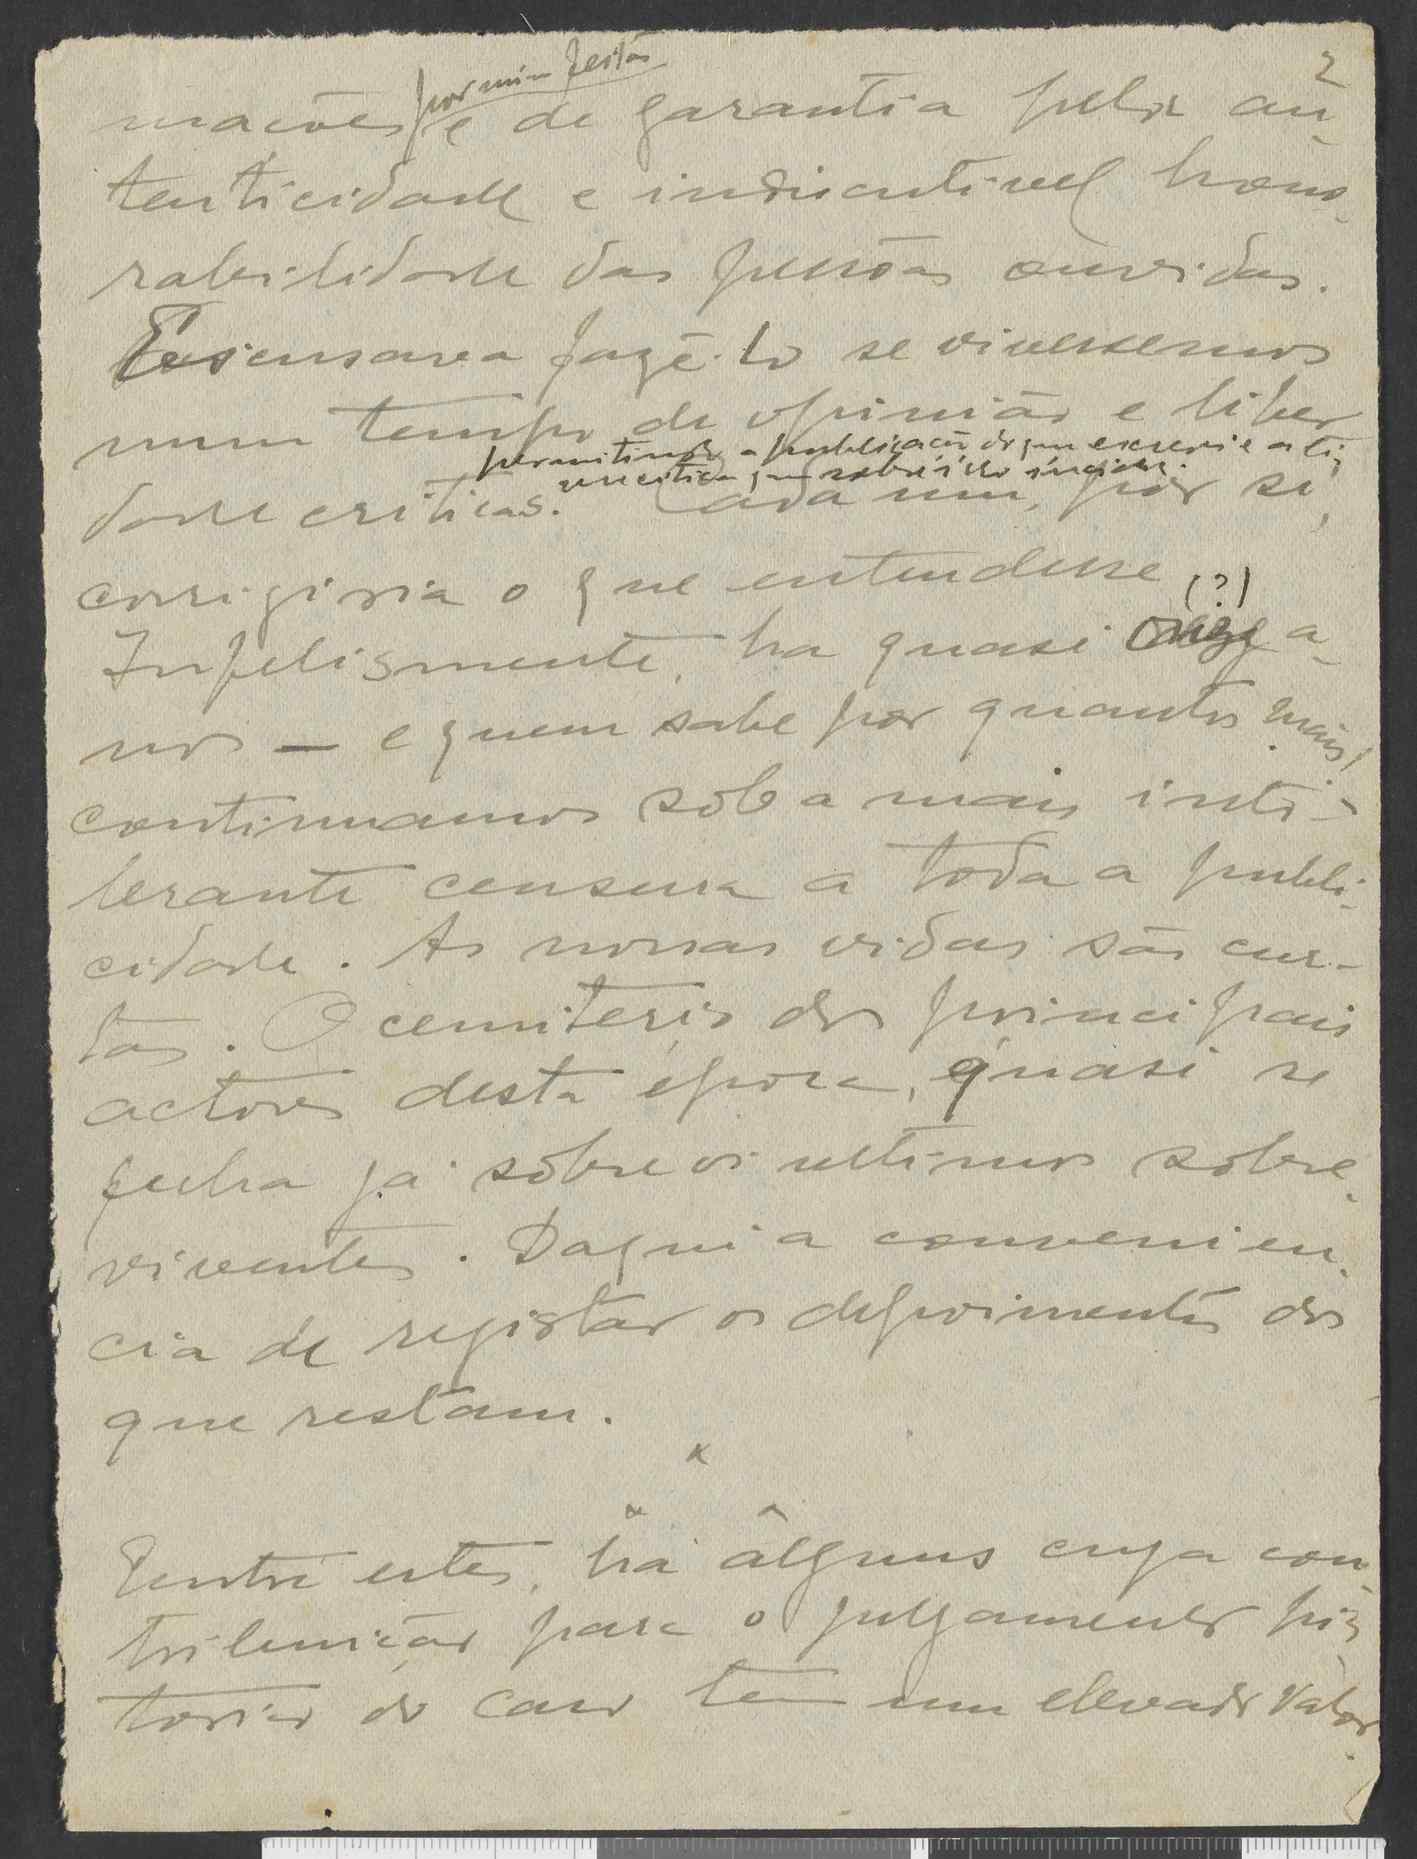 2
por mim feitas
mações e de garantia pela au-
tenticidade e indiscutivel hono-
rabilidade das pessôas ouvidas.
fazê-lo se vivessemos
num tempo de opinião e liber
permitindo a publicação do que escrevi e a ti,
critica que sobre isso incidir.
dade criticas. Cada um, por si,
corrigiria o que entendesse
(?)
Infelismente, ha quasi a-
nos — e quem sabe por quantos mais!
continuamos sob a mais into-
lerante censura a toda a publi-
cidade. As nossas vidas são cur-
tas. O cemiterio dos principais
actores desta época, quasi se
fecha já sôbre os ultimos sobre-
viventes. Daqui a convenien-
cia de registar os depoimentos dos
que restam.
x
x x
Entre estes, há alguns cuja con-
tribuição para o julgamento his-
torico do caso tem um elevado valor.